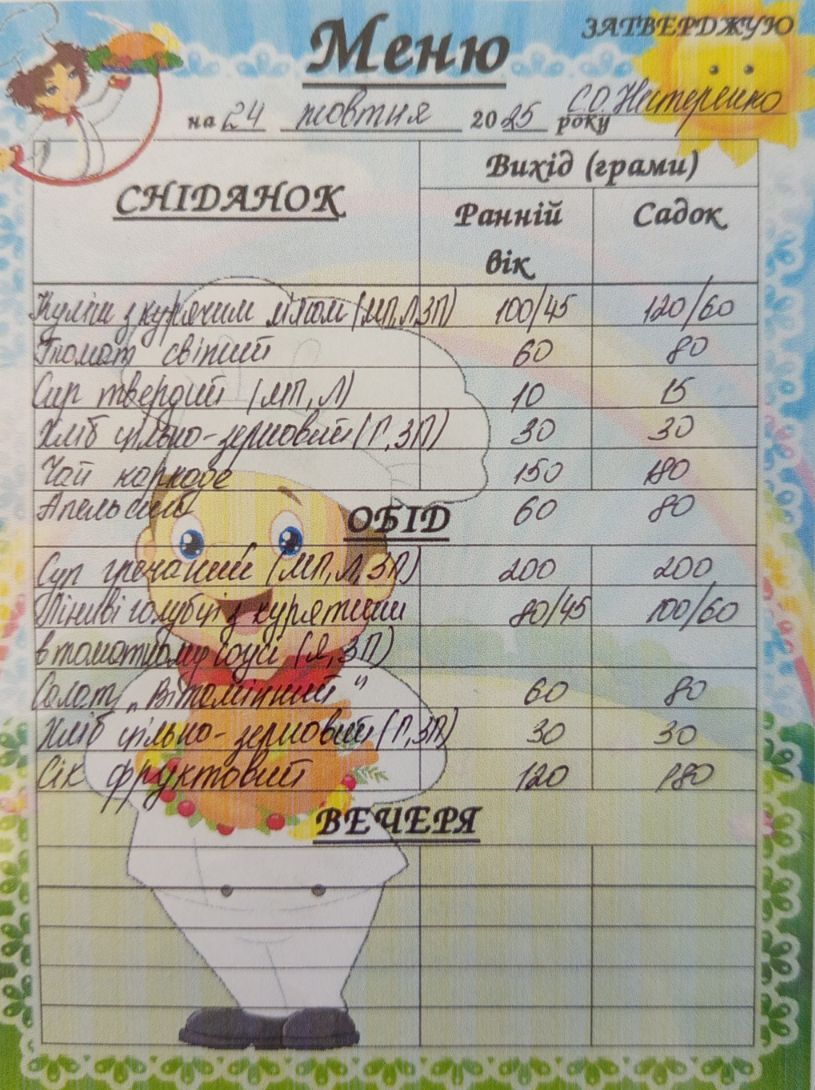 ЗАТВЕРДЖУЮ
Меню
С.О. Нестеренко
на 24 жовтня 2025 року
СНІДАНОК Вихід (грами)
Ранній вік Садок
Куліш з курячим м'ясом (МП,Л,ЗП) 100/45 120/60
Томат свіжий 60 80
Сир твердий (МП, Л) 10 15
Хліб цільно-зерновий (Г, ЗП) 30 30
Чай каркаде 150 180
Апельсин 60 80
ОБІД
Суп гречаний (МП, Л, ЗП) 200 200
Ліниві голубці з курятини 80/45 100/60
в томатному соусі (Я, ЗП)
Салат „Вітамінний" 60 80
Хліб цільно-зерновий (Г, ЗП) 30 30
Сік фруктовий 120 180
ВЕЧЕРЯ